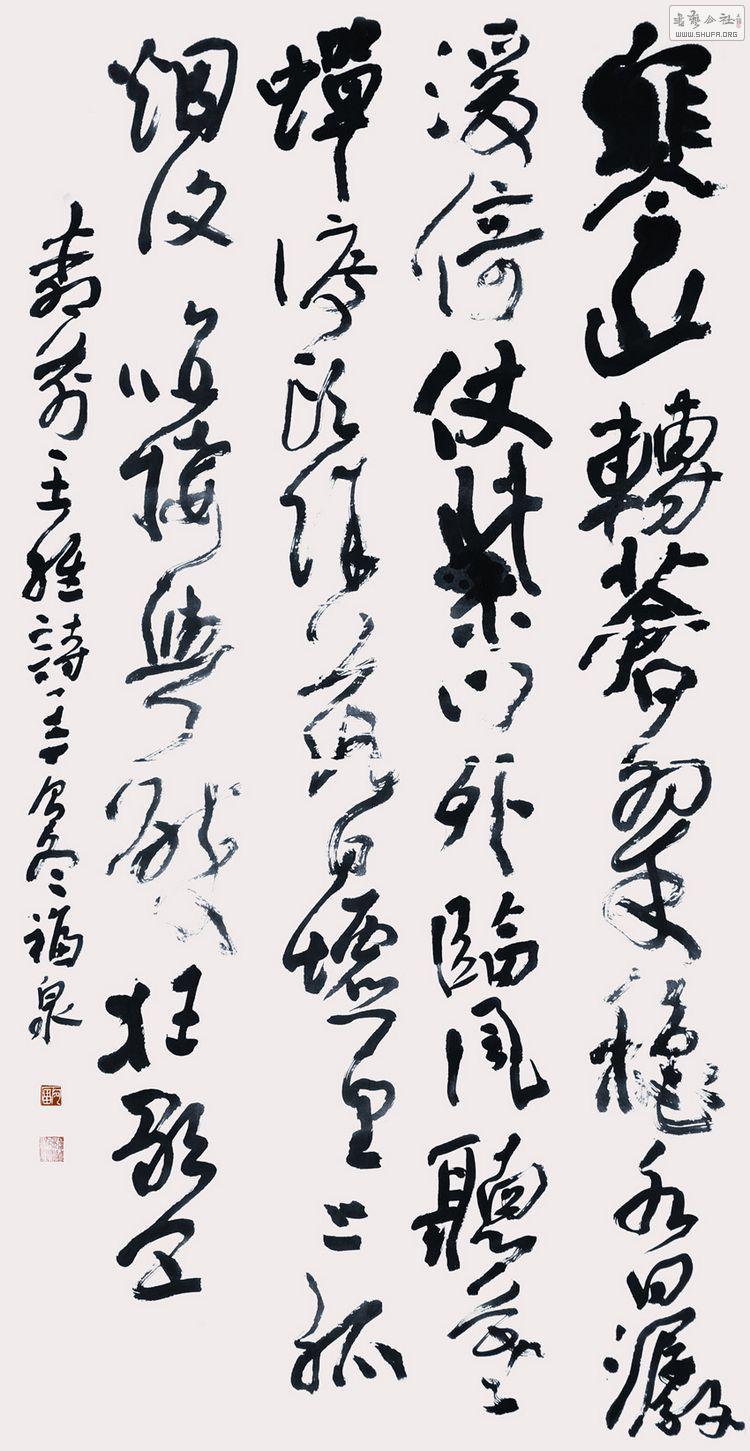 寒山轉蒼翠穐水日潺
湲倚仗柴門外臨風聽暮
蟬渡頭餘落日墟里上孤
烟復值接輿醉狂歌五
柳前王維詩一首冬福泉
書藝公社
WWW.SHUFA.ORG